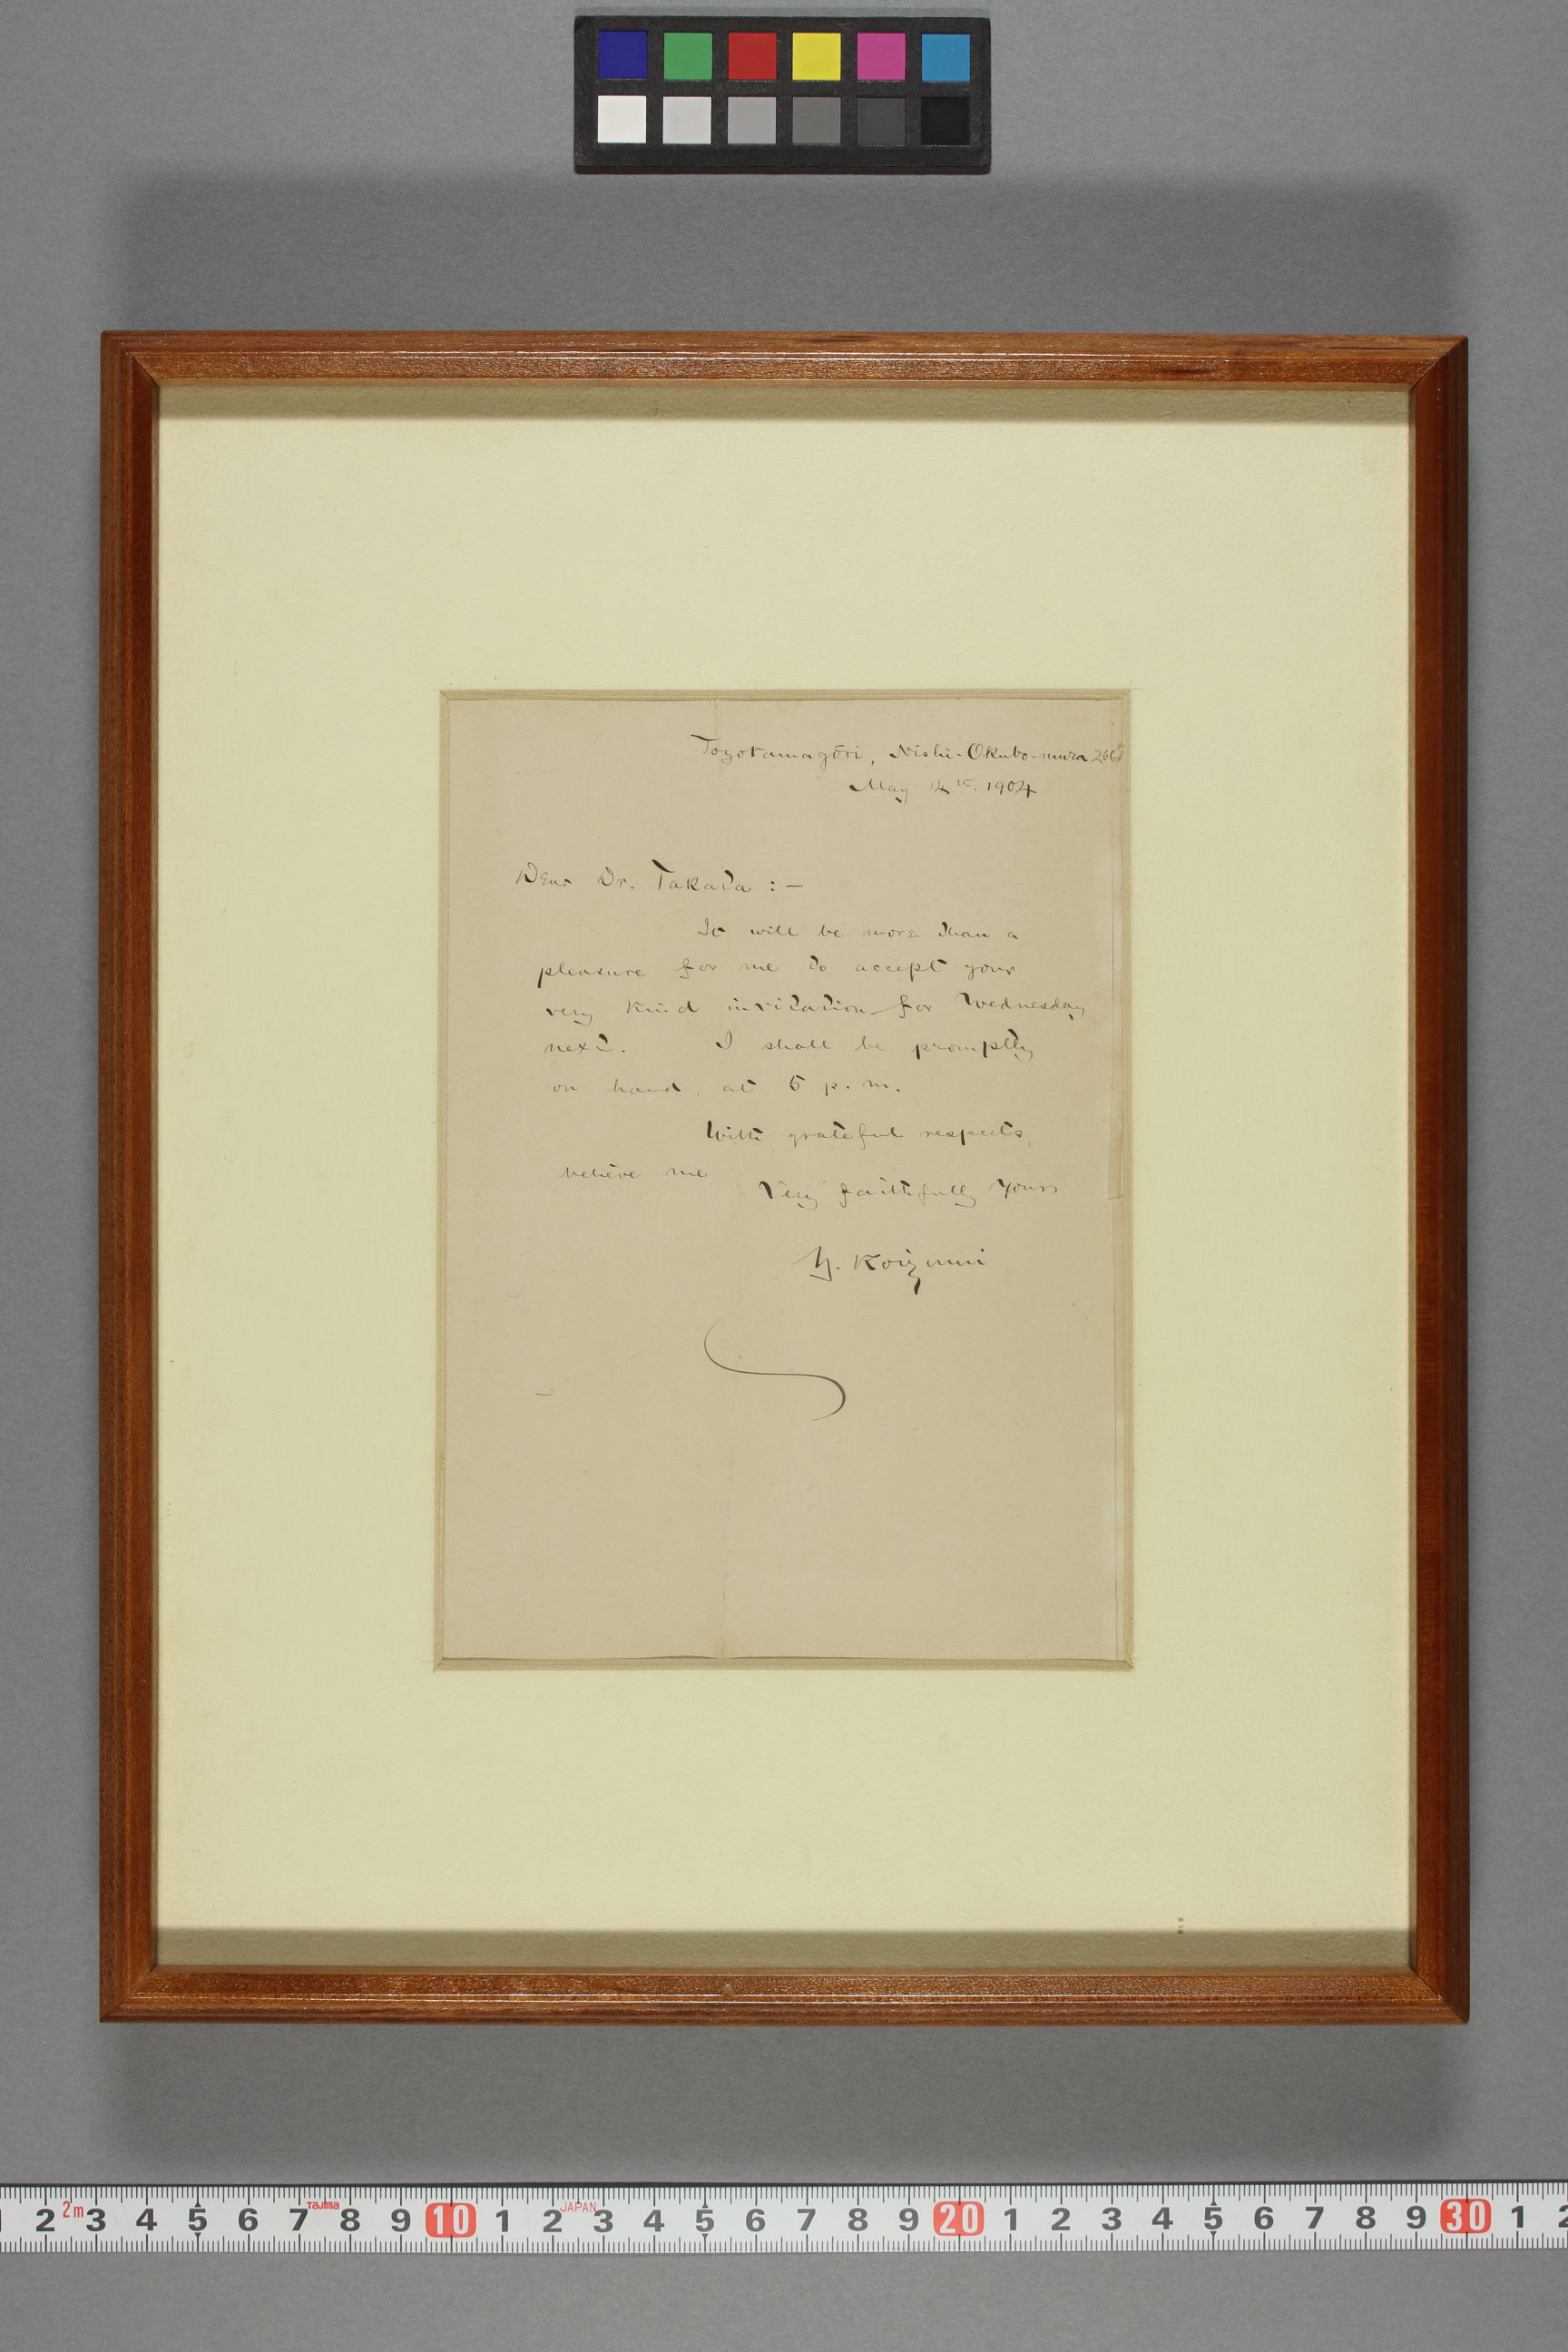 Toyotamagōri, Nishi-Okubo-mura 266
May 14th. 1904
Dear Dr. Takata :—
It will be more than a
pleasure for me to accept your
very kind invitation for Wednesday
next. I shall be promptly
on hand, at 5 p.m.
With grateful respects,
believe me
Very faithfully yours
Y. Koizumi
1 2 2m 3 4 5 6 7 Tajima 8 9 10 1 2 JAPAN 3 4 5 6 7 8 9 20 1 2 3 4 5 6 7 8 9 30 1 2